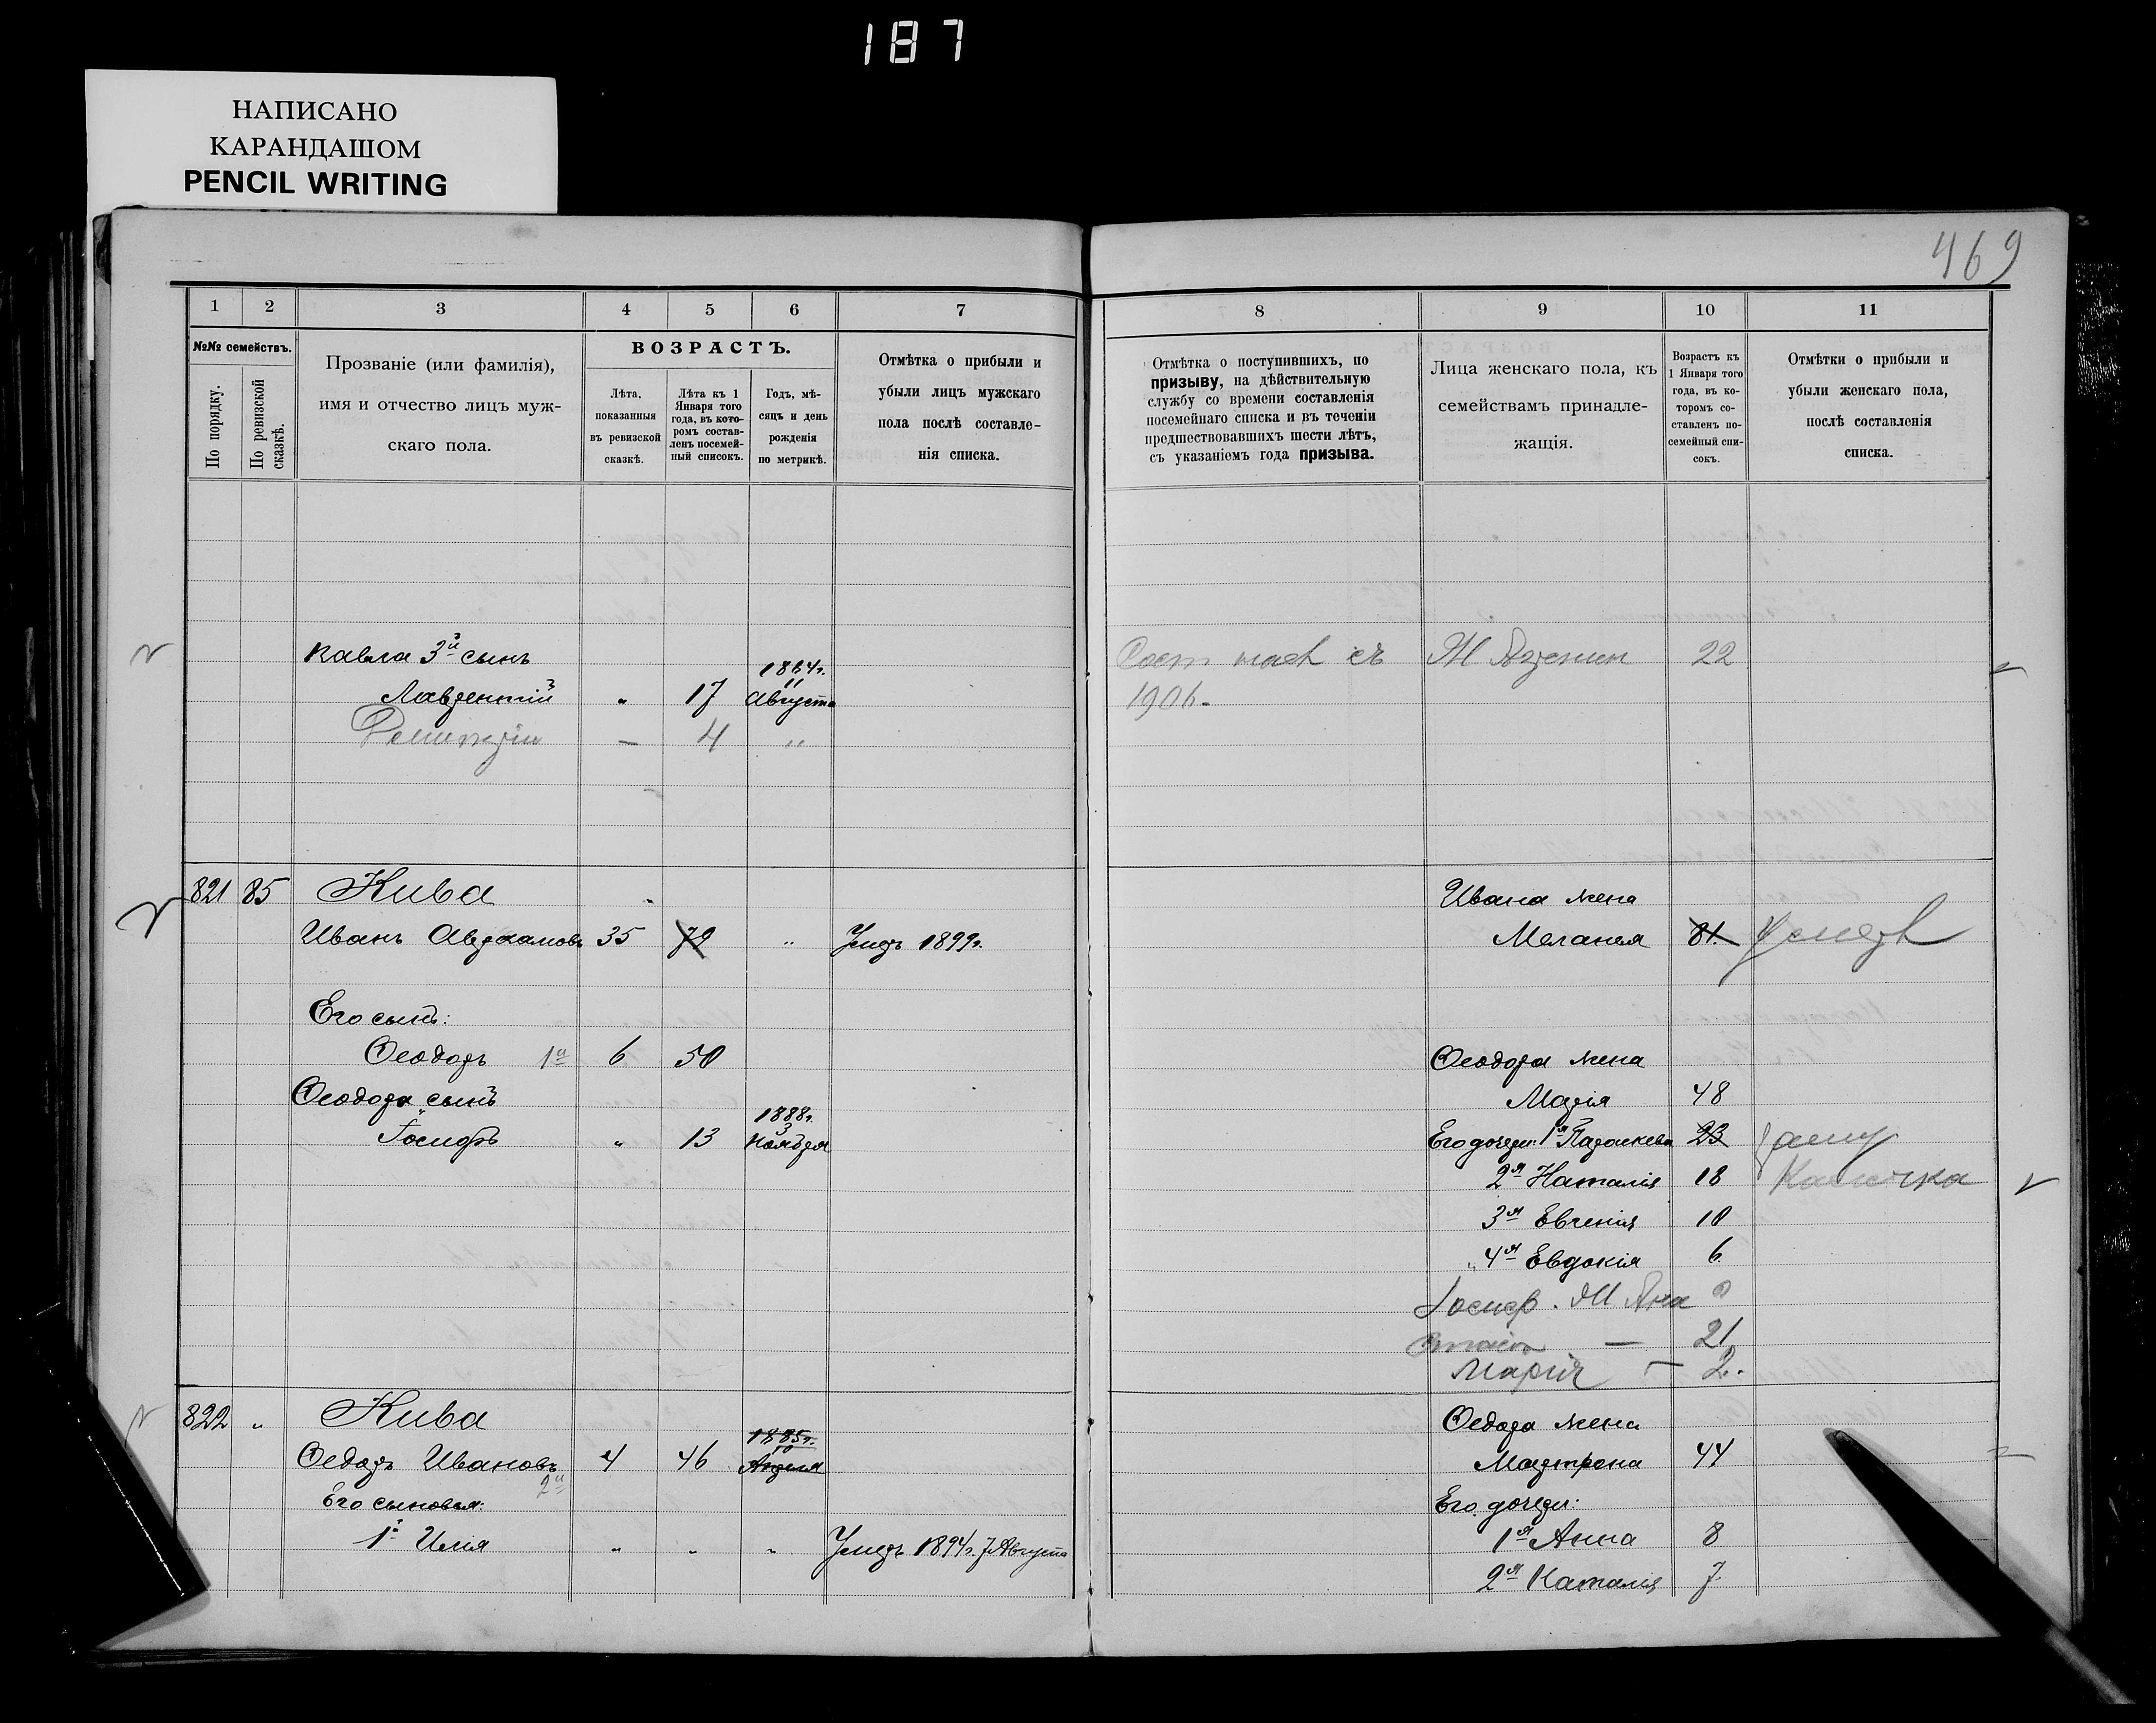 187
НАПИСАНО
КАРАНДАШОМ
PENCIL WRITING
469
1 2 3 4 5 6 7
№№ семействъ.
По порядку.
По ревизской сказкѣ.
Прозваніе (или фамилія),
имя и отчество лицъ муж-
скаго пола.
ВОЗРАСТЪ.
Лѣта,
показанныя
въ ревизской
сказкѣ.
Лѣта къ 1
Января того
года, въ кото-
ромъ состав-
ленъ посемей-
ный списокъ.
Годъ, мѣ-
сяцъ и день
рожденія
по метрикѣ.
Отмѣтка о прибыли и
убыли лицъ мужскаго
пола послѣ составле-
нія списка.
8 9 10 11
Отмѣтка о поступившихъ, по
призыву, на дѣйствительную
службу со времени составленія
посемейнаго списка и въ теченіи
предшествовавшихъ шести лѣтъ,
съ указаніемъ года призыва.
Лица женскаго пола, къ
семействамъ принадле-
жащія.
Возрастъ къ
1 Января того
года, въ ко-
торомъ со-
ставленъ по-
семейный спи-
сокъ.
Отмѣтки о прибыли и
убыли женскаго пола,
послѣ составленія
списка.
Павла 3й сынъ
Лаврентій " 17 1884г. 11 Августа
— 4 "
съ
1906.
22
821 85 Кива
Иванъ Авраамовъ 35 79 " Умеръ 1899г.
Его сынъ:
Ѳеодоръ 1й 6 50
Ѳеодора сынъ
Іосифъ " 13 1888г. 3 Ноября
Ивана жена
Меланія 81. Умерла
Ѳеодора жена
Марія 48
Его дочери: 1я Параскева 23
2я Наталія 18
3я Евгенія 10
4я Евдокія 6
— 21
Марія — 2.
822 " Кива
Ѳедоръ Ивановъ 2й 4 46 1885г. 10 Апреля
Его сыновья:
1й Илія " " " Умеръ 1894г. 7 Августа
Ѳедора жена
Матрона 44
Его дочери:
1я Анна 8
2я Наталія 7